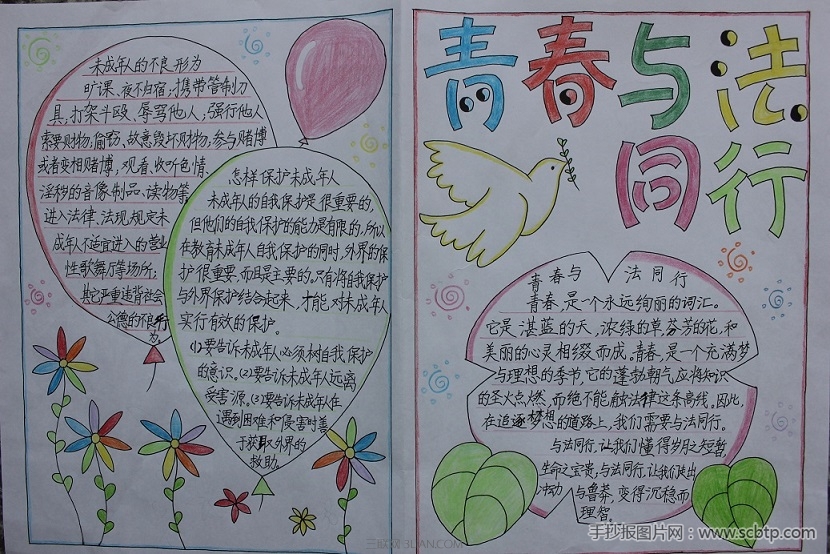 未成年人的不良形为
旷课、夜不归宿;携带管制刀
具,打架斗殴、辱骂他人;强行他人
索要财物,偷窃、故意毁坏财物;参与赌博
或者变相赌博,观看、收听色情、
淫秽的音像制品、读物等
进入法律、法规规定未
成年人不适宜进入的营业
性歌舞厅等场所;
其它严重违背社会
公德的不良行
为
怎样保护未成年人
未成年人的自我保护是很重要的,
但他们的自我保护的能力是有限的,所以
在教育未成年人自我保护的同时,外界的保
护很重要,而且是主要的。只有将自我保护
与外界保护结合起来,才能对未成年人
实行有效的保护。
(1)要告诉未成年人必须树自我保护
的意识。(2)要告诉未成年人远离
受害源。(3)要告诉未成年人在
遇到困难和侵害时善
于获取外界的
救助。
青春与法
同行
青春与 法同行
青春,是一个永远绚丽的词汇。
它是湛蓝的天,浓绿的草,芬芳的花,和
美丽的心灵相缀而成。青春,是一个充满梦
与理想的季节,它的蓬勃朝气应将知识
的圣火点燃,而绝不能触法律这条高线。因此,
在追逐梦想的道路上,我们需要与法同行。
与法同行,让我们懂得岁月之短暂,
生命之宝贵,与法同行,让我们走出
冲动 与鲁莽,变得沉稳而
理智。
三联网 3LIAN.COM
手抄报图片网:www.scbtp.com